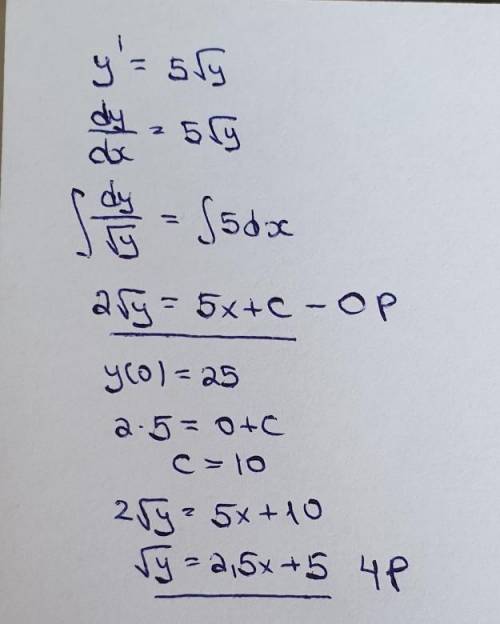 y' = 5√y
dy/dx = 5√y
∫ dy/√y = ∫5dx
2√y = 5x+C – ОР
y(0) = 25
2·5 = 0+C
C = 10
2√y = 5x+10
√y = 2,5x+5 ЧР